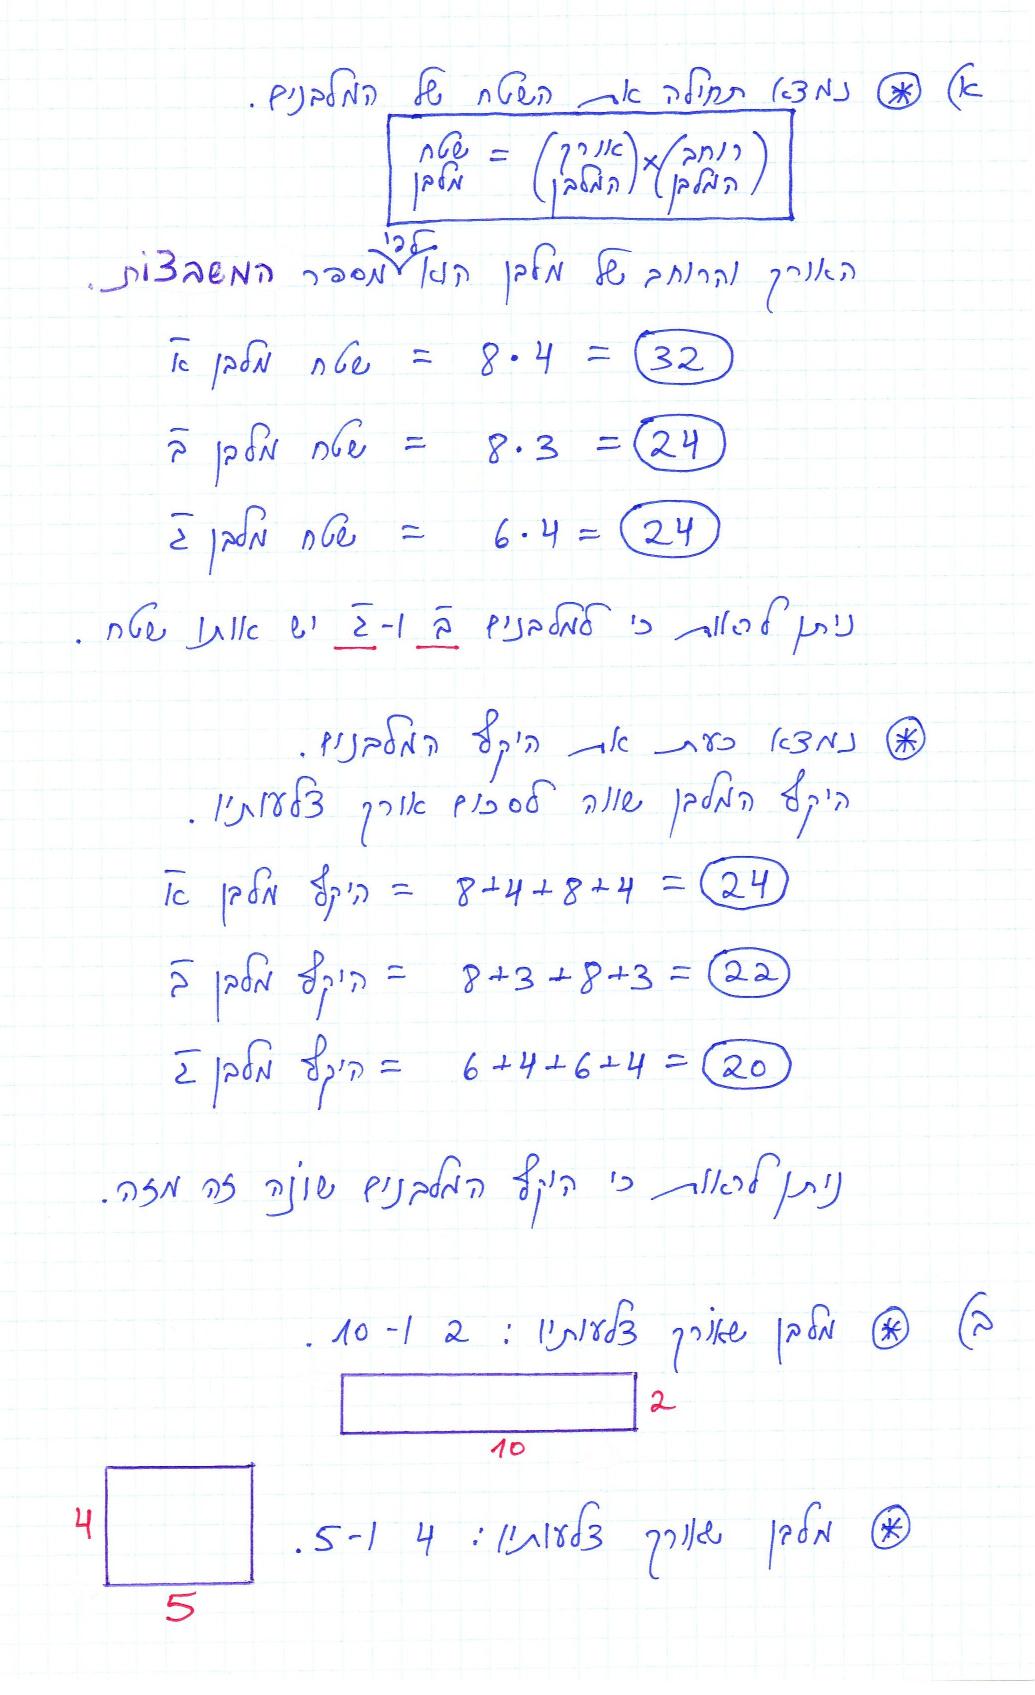 א) * נמצא תחילה את השטח של המלבנים.
שטח מלבן = (אורך המלבן) × (רוחב המלבן)
האורך והרוחב של מלבן הוא לפי מספר המשבצות.
שטח מלבן א = 8·4 = 32
שטח מלבן ב = 8·3 = 24
שטח מלבן ג = 6·4 = 24
ניתן לראות כי למלבנים ב ו-ג יש אותו שטח.
* נמצא כעת את היקף המלבנים.
היקף המלבן שווה לסכום אורך צלעותיו.
היקף מלבן א = 8+4+8+4 = 24
היקף מלבן ב = 8+3+8+3 = 22
היקף מלבן ג = 6+4+6+4 = 20
ניתן לראות כי היקף המלבנים שונה זה מזה.
ב) * מלבן שאורך צלעותיו: 2 ו-10.
2
10
* מלבן שאורך צלעותיו: 4 ו-5.
4
5